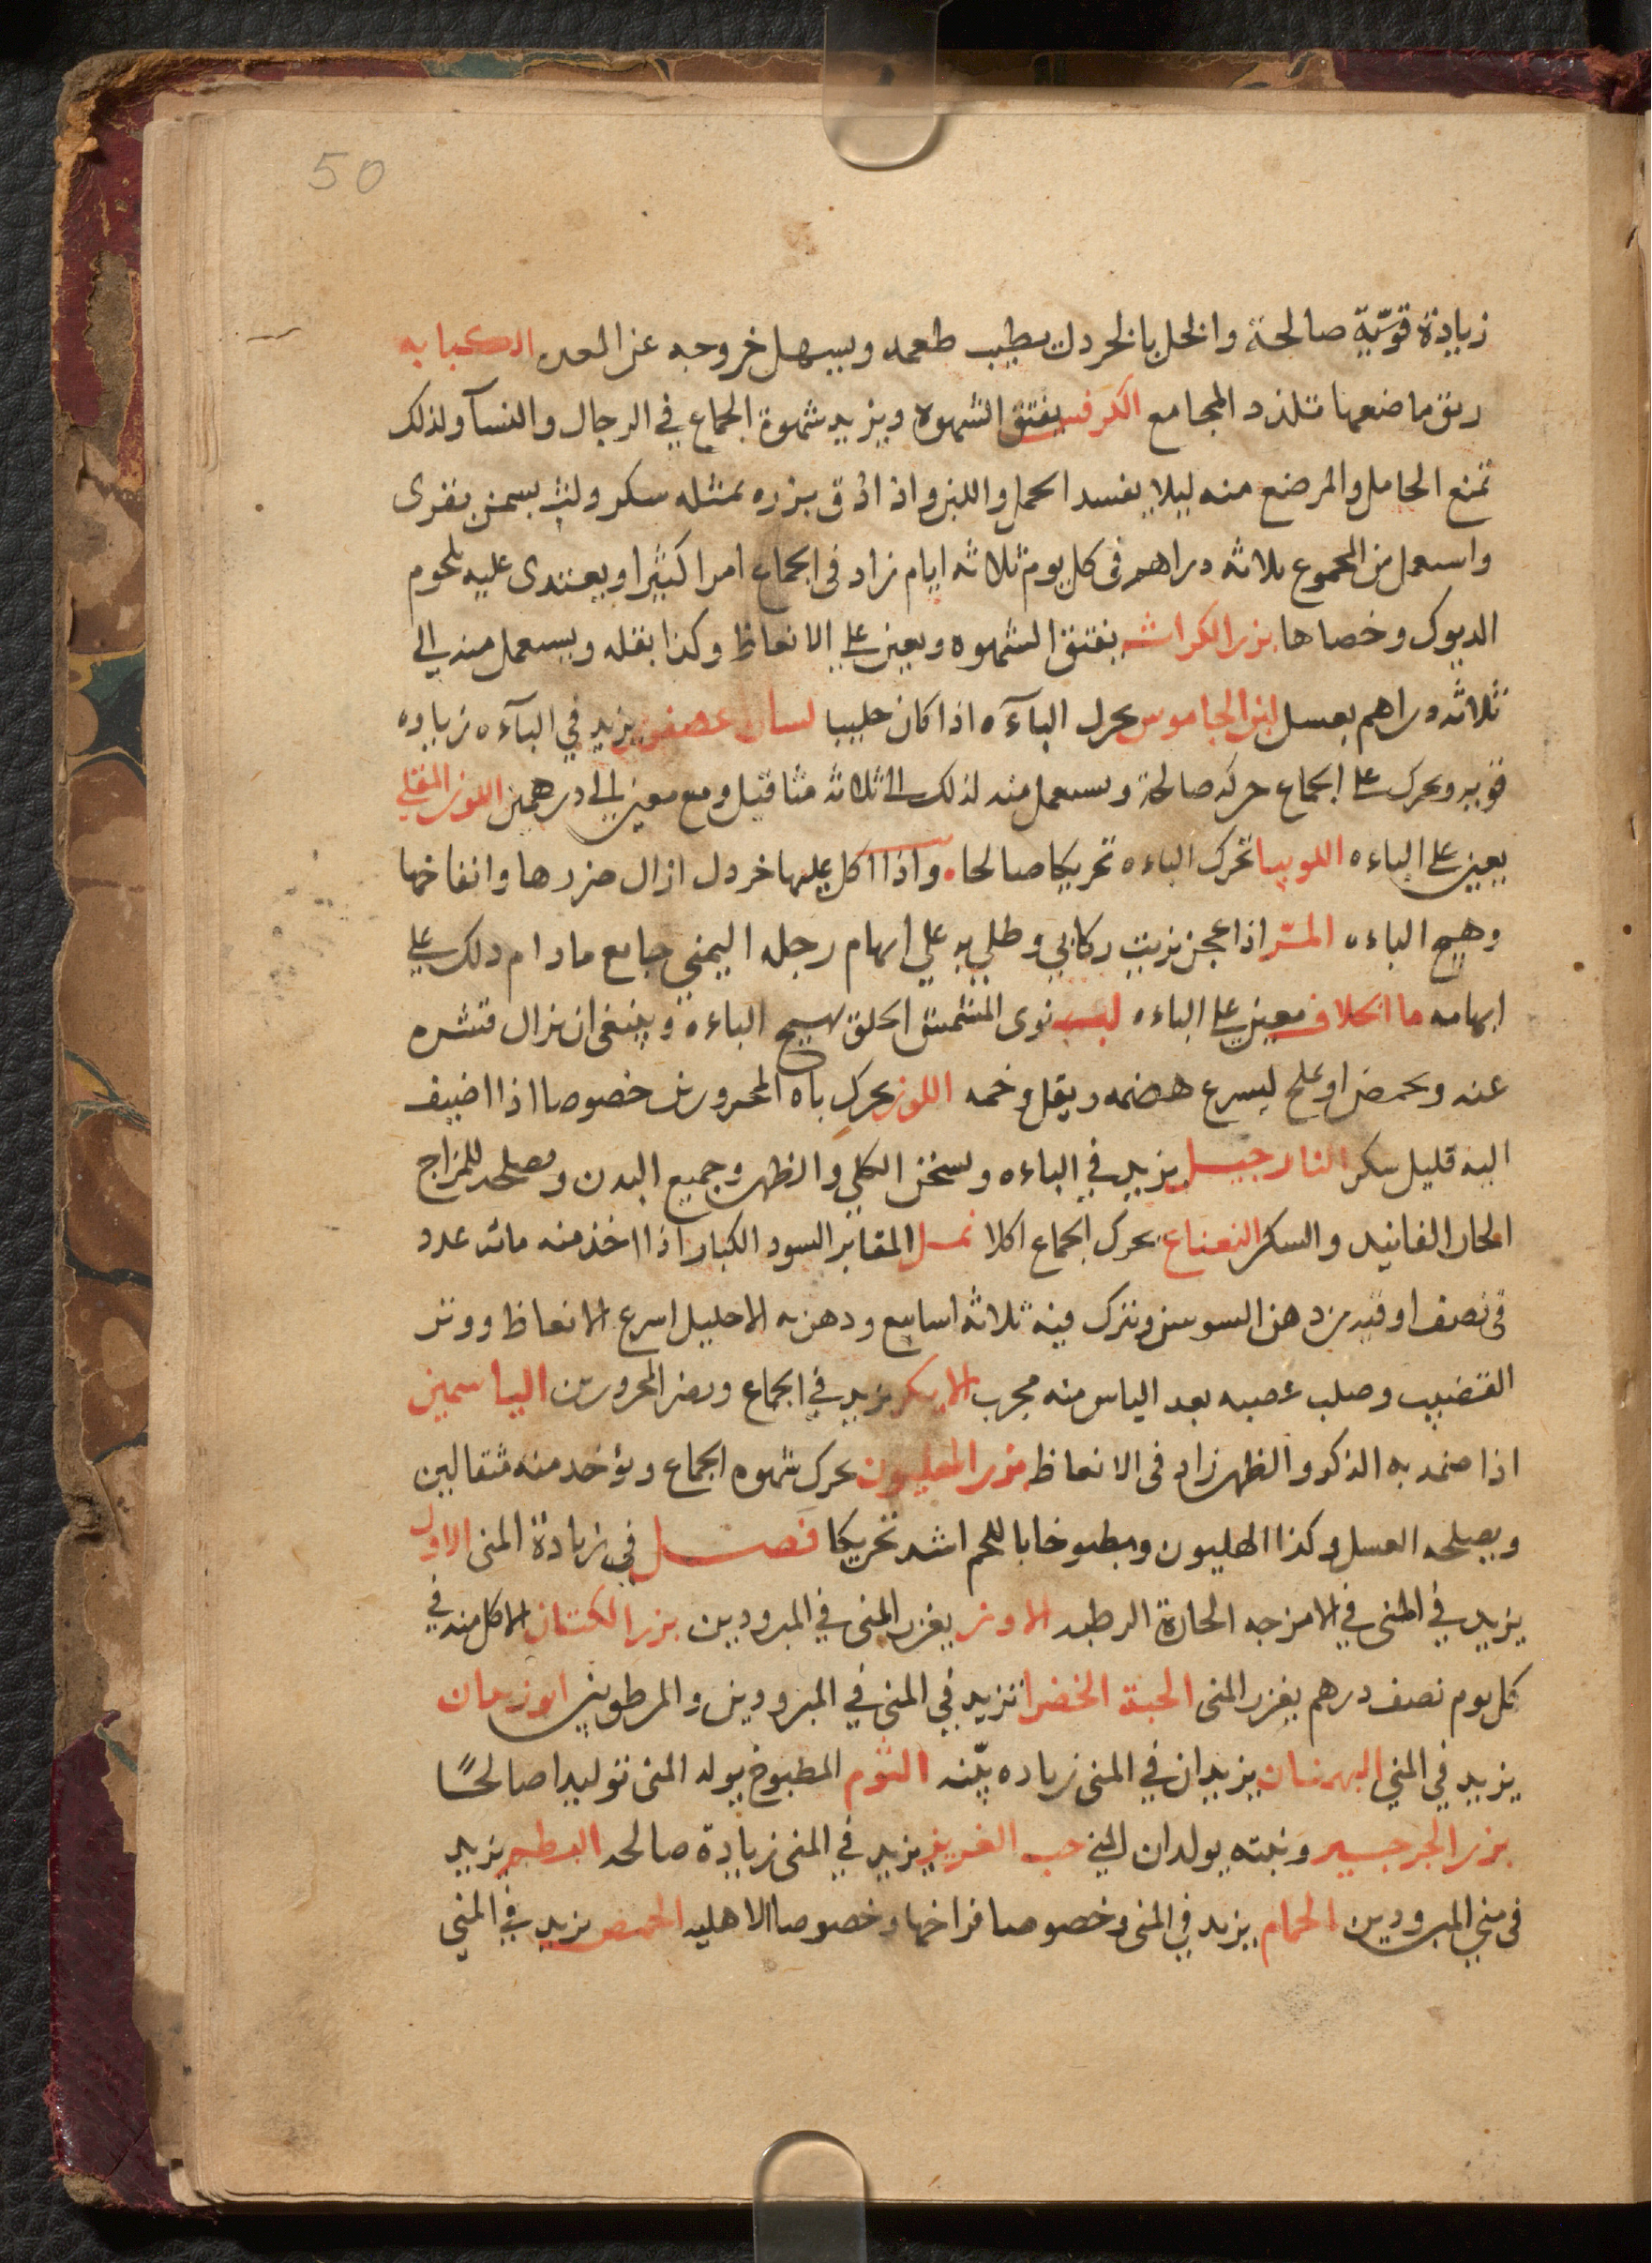 50
زيادة قويّة صالحة والخل بالخردل يطيب طعمه ويسهل خروجه عن المعده الكبابه
ريق ماضغها تلذذ المجامع الكرفس يفتق الشهوه ويزيد شهوة الجماع في الرجال والنسآ ولذلك
تمنع الحامل والمرضع منه ليلا يفسد الحمل واللبن واذا دق بزره بمثله سكر ولت بسمن بقرى
واستعمل من المجموع ثلاثه دراهم في كل يوم ثلاثه ايام زاد في الجماع امرا كثيرا ويغتدى عليه بلحوم
الديوك وخصاها بزر الكراث يفتق الشهوه ويعين على الانعاظ وكذا بقله ويستعمل منه الي
ثلاثه دراهم بعسل لبن الجاموس يحرك البآءه اذا كان حليبا لسان عصفور يزيد في البآءه زياده
قويه ويحرك على الجماع حركه صالحة ويستعمل منه لذلك الى ثلاثه مثاقيل ومع معين الى درهمين اللوز المقلي
يعين على الباءه اللوبيا تحرك الباءه تحريكا صالحا واذا اكل عليها خردل ازال ضررها وانفاخها
وهيج الباءه المر اذا عجن بزيت ركابي وطلي به على ابهام رجله اليمني جامع مادام ذلك على
ابهامه ما الخلاف معين على الباءه لب نوى المشمش الحلو يهيج الباءه وينبغى ان يزال قشره
عنه ويحمض او يملح ليسرع هضمه ويقل وخمه اللوز يحرك باه المحرورين خصوصا اذا اضيف
اليه قليل سكر النارجيل يزيد في الباءه ويسخن الكلي والظهر وجميع البدن ومصلحه للمزاج
الحار الفانيد والسكر النعناع يحرك الجماع اكلا نمل المقابر السود الكبار اذا اخذ منه مائه عدد
في نصف اوقيه من دهن السوسن وترك فيه ثلاثه اسابيع ودهن به الاحليل اسرع الانعاظ ووتر
القضيب وصلب عصبه بعد الياس منه مجرب يزيد في الجماع ويضر المحرورين الياسمين
اذا ضمد به الذكر والظهر زاد في الانعاظ بزر الهليون يحرك شهوه الجماع ويؤخد منه مثقالين
ويصلحه العسل وكذا الهليون ومطبوخا باللحم اشد تحريكا فصل في زيادة المنى الاول
يزيد في المنى في الامزجه الحارة الرطبه الاوز يغزر المنى في المبرودين بزر الكتان الاكل منه في
كل يوم نصف درهم يغزر المنى الحبة الخضرا تزيد في المنى في المبرودين والمرطوبين
يزيد في المنى البهمنان يزيدان في المنى زياده بيّنه الثوم المطبوخ يولد المنى توليدا صالحًا
بزر الجرجير ونبته يولدان المنى حب العزيز يزيد في المنى زيادة صالحه البطم يزيد
في منى المبرودين الحمام يزيد في المنى وخصوصا فراخها وخصوصا الاهليه الحمص يزيد في المني